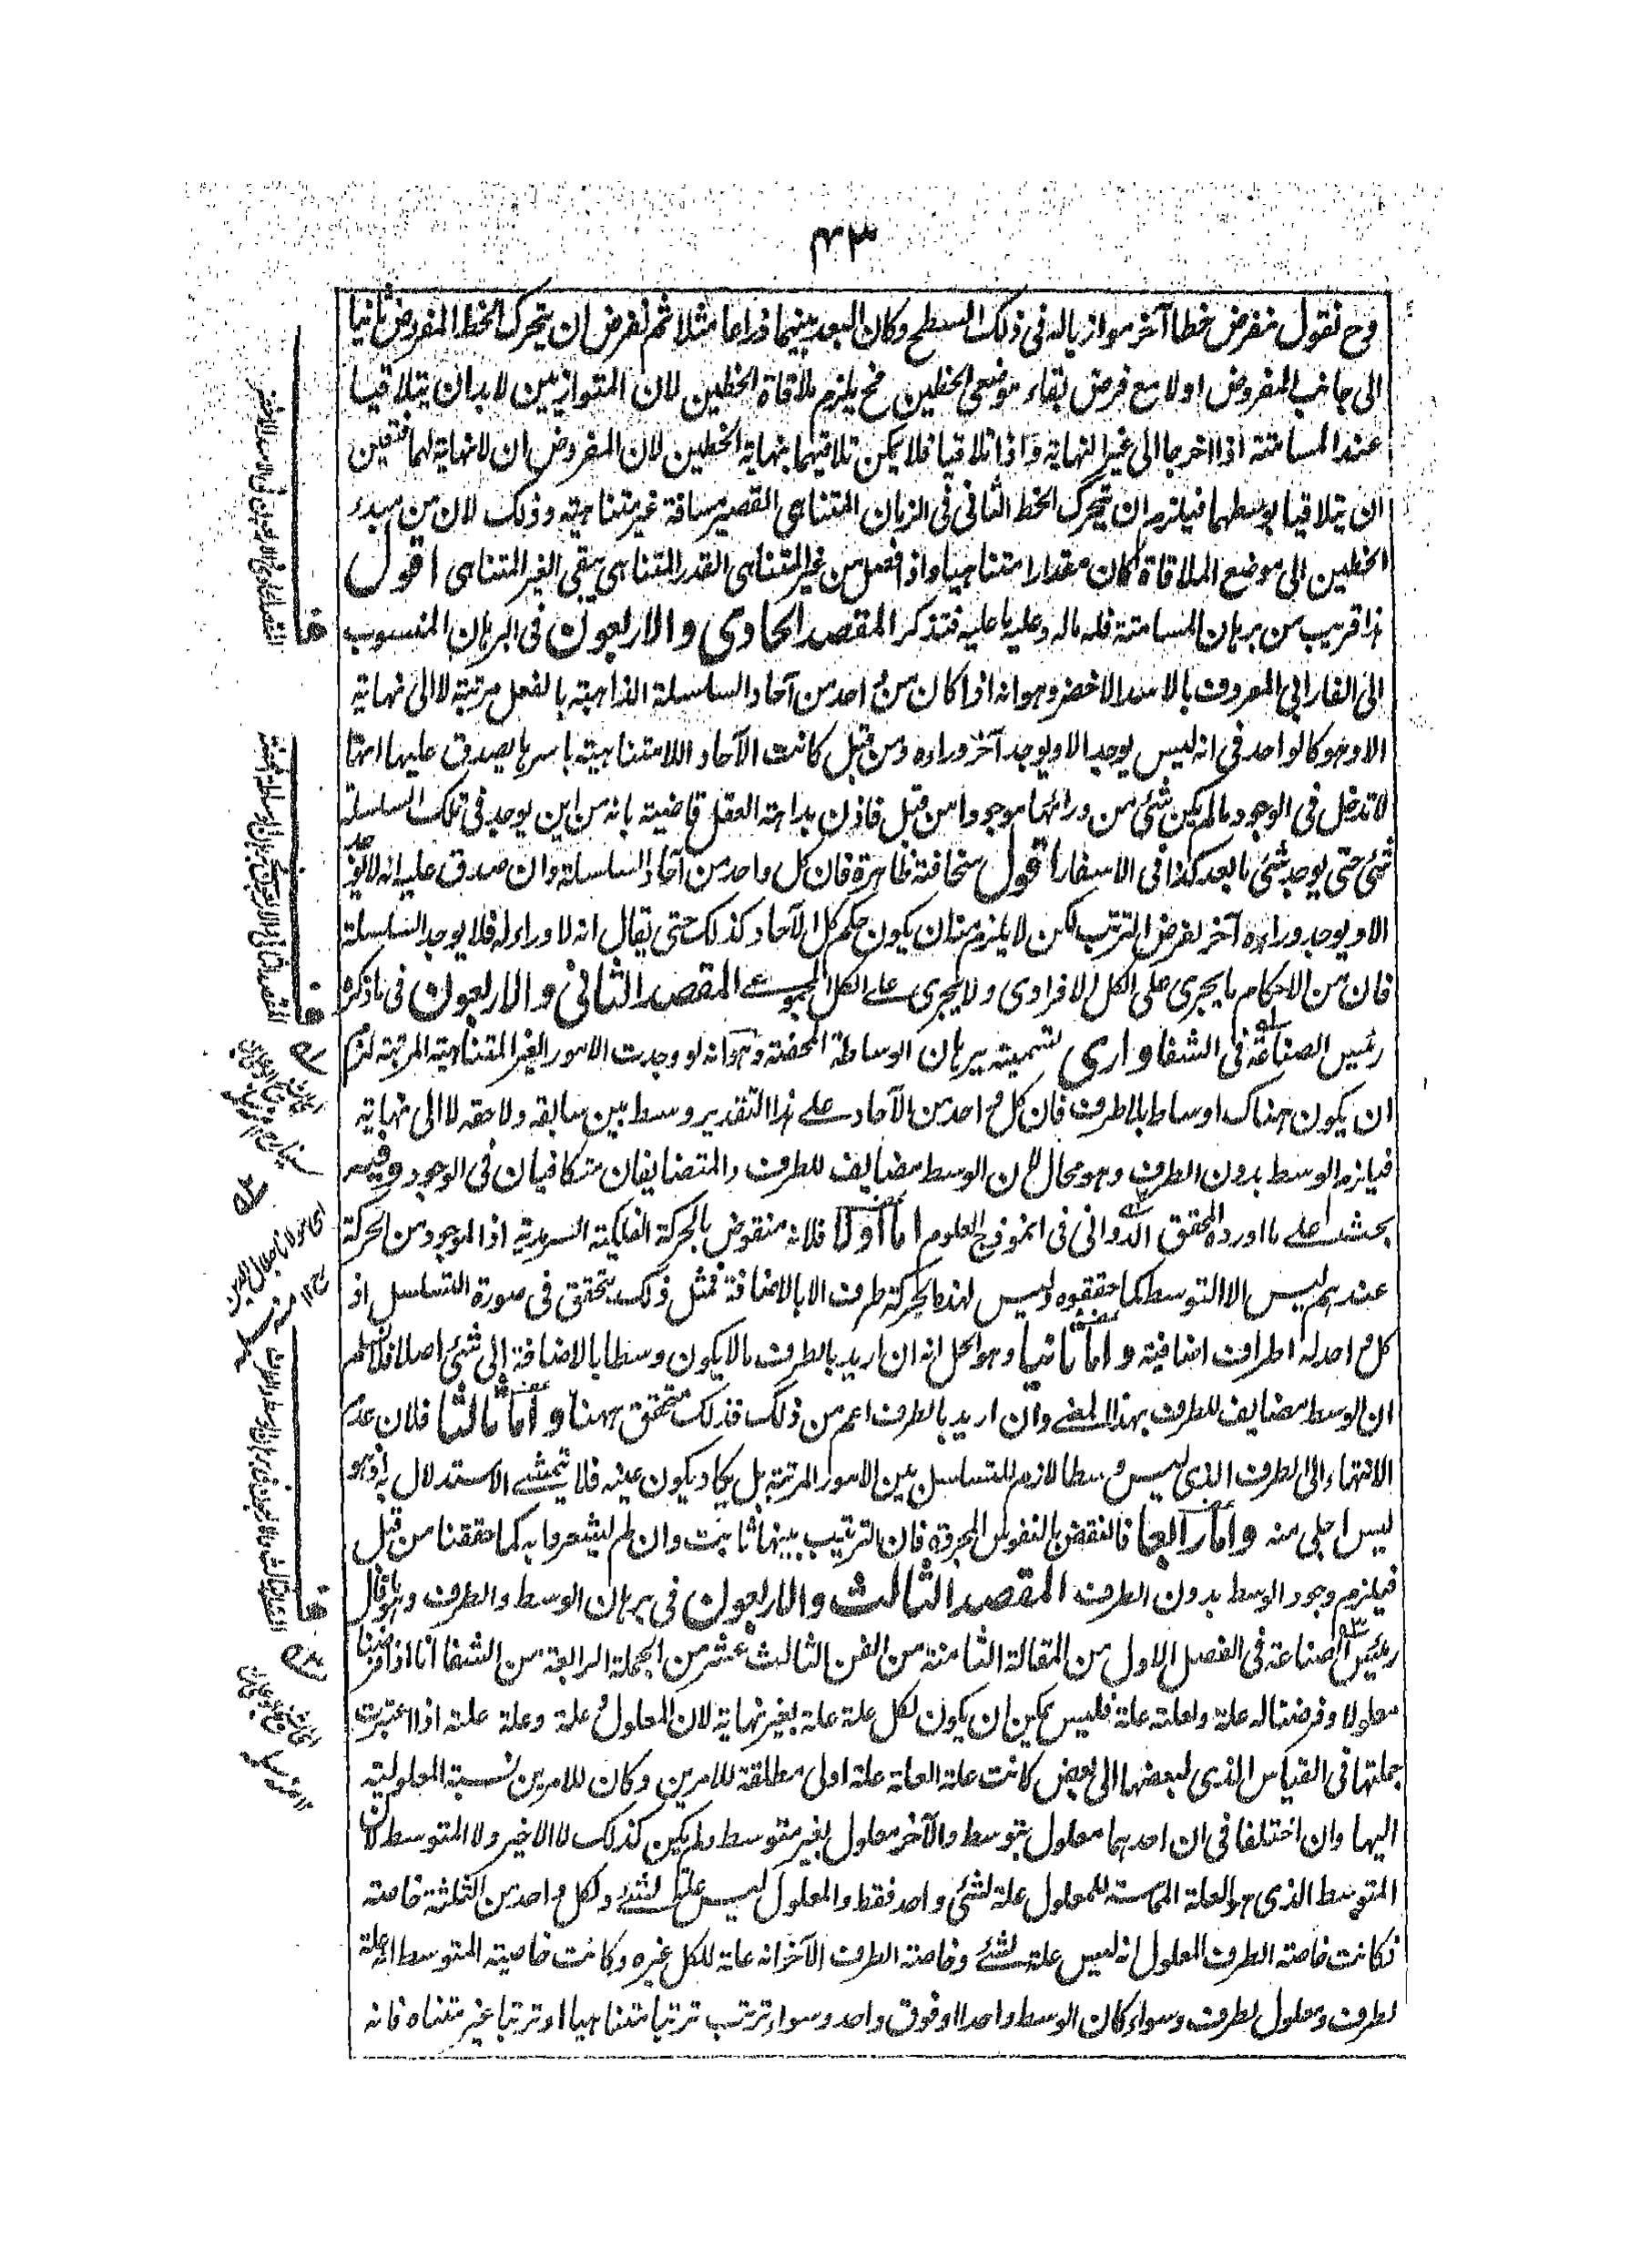 ۴۳
وح نقول نفرض خطا آخر موازيا له فى ذلك السطح وكان البعد بينهما ذراعا مثلا ثم نفرض ان يتحرك الخط المفروض ثانيا
الى جانب المفروض اولا مع فرض بقاء موضعى الخطين فح يلزم ملاقاة الخطين لان المتوازيين لابدان يتلاقيا
عند المسامتة اذا اخرجا الى غير النهاية واذا تلاقيا فلا يمكن تلاقيهما بنهاية الخطين لان المفروض ان لا نهاية لهما فتعين
ان يتلاقيا بوسطهما فيلزم ان يتحرك الخط الثانى فى الزمان المتناهى القصير مسافة غير متناهية وذلك لان من مبدء
الخطين الى موضع الملاقاة كان مقدارا متناهيا واذا فصل من غير المتناهى القدر المتناهى يبقى الغير المتناهى اقول
هذا قريب من برهان المسامتة فله ماله وعليه ما عليه فتذكر المقصد الحادى والاربعون فى البرهان المنسوب
الى الفارابى المعروف بالاسد الاخضر وهو انه اذا كان من احد من آحاد السلسلة الذاهبة بالفعل مرتبة لا الى نهاية
الا وهو كالواحد فى انه ليس يوجد الا ويوجد آخر وراءه ومن قبل كانت الآحاد اللامتناهية باسرها يصدق عليها انها
لا تدخل فى الوجود مالم يكن شئ من ورائها موجودا من قبل فاذن بداهة العقل قاضية بانه من اين يوجد فى تلك السلسلة
شئ حتى يوجد شئ ما بعد كذا فى الاسفار اقول سخافته ظاهرة فان كل واحد من آحاد السلسلة وان صدق عليه انه لا يوجد
الا ويوجد وراءه آخر لفرض الترتب لكن لا يلزم منه ان يكون حكم كل الآحاد كذلك حتى يقال انه لا وراء له فلا يوجد السلسلة
فان من الاحكام ما يجرى على الكل الافرادى ولا يجرى على الكل المجموعى المقصد الثانى والاربعون فى ما ذكره
رئيس الصناعة فى الشفا وارى تسميته ببرهان الوساطة المحضة وهو انه لو وجدت الامور الغير المتناهية المرتبة لزم
ان يكون هناك اوساط بلا طرف فان كل واحد من الآحاد على هذا التقدير وسط بين سابقه ولاحقه لا الى نهاية
فيلزم الوسط بدون الطرف وهو محال لان الوسط مضايف للطرف والمتضايفان متكافيان فى الوجود وفيه
بحث على ما اورده المحقق الدوانى فى انموذج العلوم اما اولا فلانه منقوض بالحركة الفلكية السرمدية اذ الموجود من الحركة
عندهم ليس الا التوسط كما حققوه وليس لهذه الحركة طرف الا بالاضافة فمثل ذلك يتحقق فى صورة التسلسل اذ
كل واحد له اطراف اضافية واما ثانيا وهو الحل انه ان اريد بالطرف ما لا يكون وسطا بالاضافة الى شئ اصلا فلا نسلم
ان الوسط مضايف للطرف بهذا المعنى وان اريد بالطرف اعم من ذلك فذلك متحقق ههنا واما ثالثا فلان عدم
الانتهاء الى الطرف الذى ليس وسطا لازم للتسلسل بين الامور المرتبة بل يكاد يكون عينه فلا يتمشى الاستدلال به اذ هو
ليس اجلى منه واما رابعا فالنقض بالنفوس المجردة فان الترتيب بينها ثابت وان لم يشعروا به كما حققنا من قبل
فيلزم وجود الوسط بدون الطرف المقصد الثالث والاربعون فى برهان الوسط والطرف وهو ما قال
رئيس الصناعة فى الفصل الاول من المقالة الثامنة من الفن الثالث عشر من الجملة الرابعة من الشفا انا اذا فرضنا
معلولا وفرضنا له علة ولعلته علة فليس يمكن ان يكون لكل علة علة بغير نهاية لان المعلول وعلة وعلة علته اذا اعتبرت
جملتها فى القياس الذى لبعضها الى بعض كانت علة العلة علة اولى مطلقة للامرين وكان للامرين نسبة المعلولية
اليها وان اختلفا فى ان احدهما معلول بتوسط والآخر معلول بغير متوسط ولم يكن كذلك لا الاخير ولا المتوسط لان
المتوسط الذى هو العلة المماسة للمعلول علة لشئ واحد فقط والمعلول ليس علة لشئ ولكل واحد من الثلثة خاصة
فكانت خاصة الطرف المعلول انه ليس علة لشئ وخاصة الطرف الآخر انه علة للكل غيره وكانت خاصية المتوسط انه علة
لطرف ومعلول لطرف وسواء كان الوسط واحدا او فوق واحد وسواء ترتب ترتبا متناهيا او ترتبا غير متناه فانه
اى مولانا جلال الدين